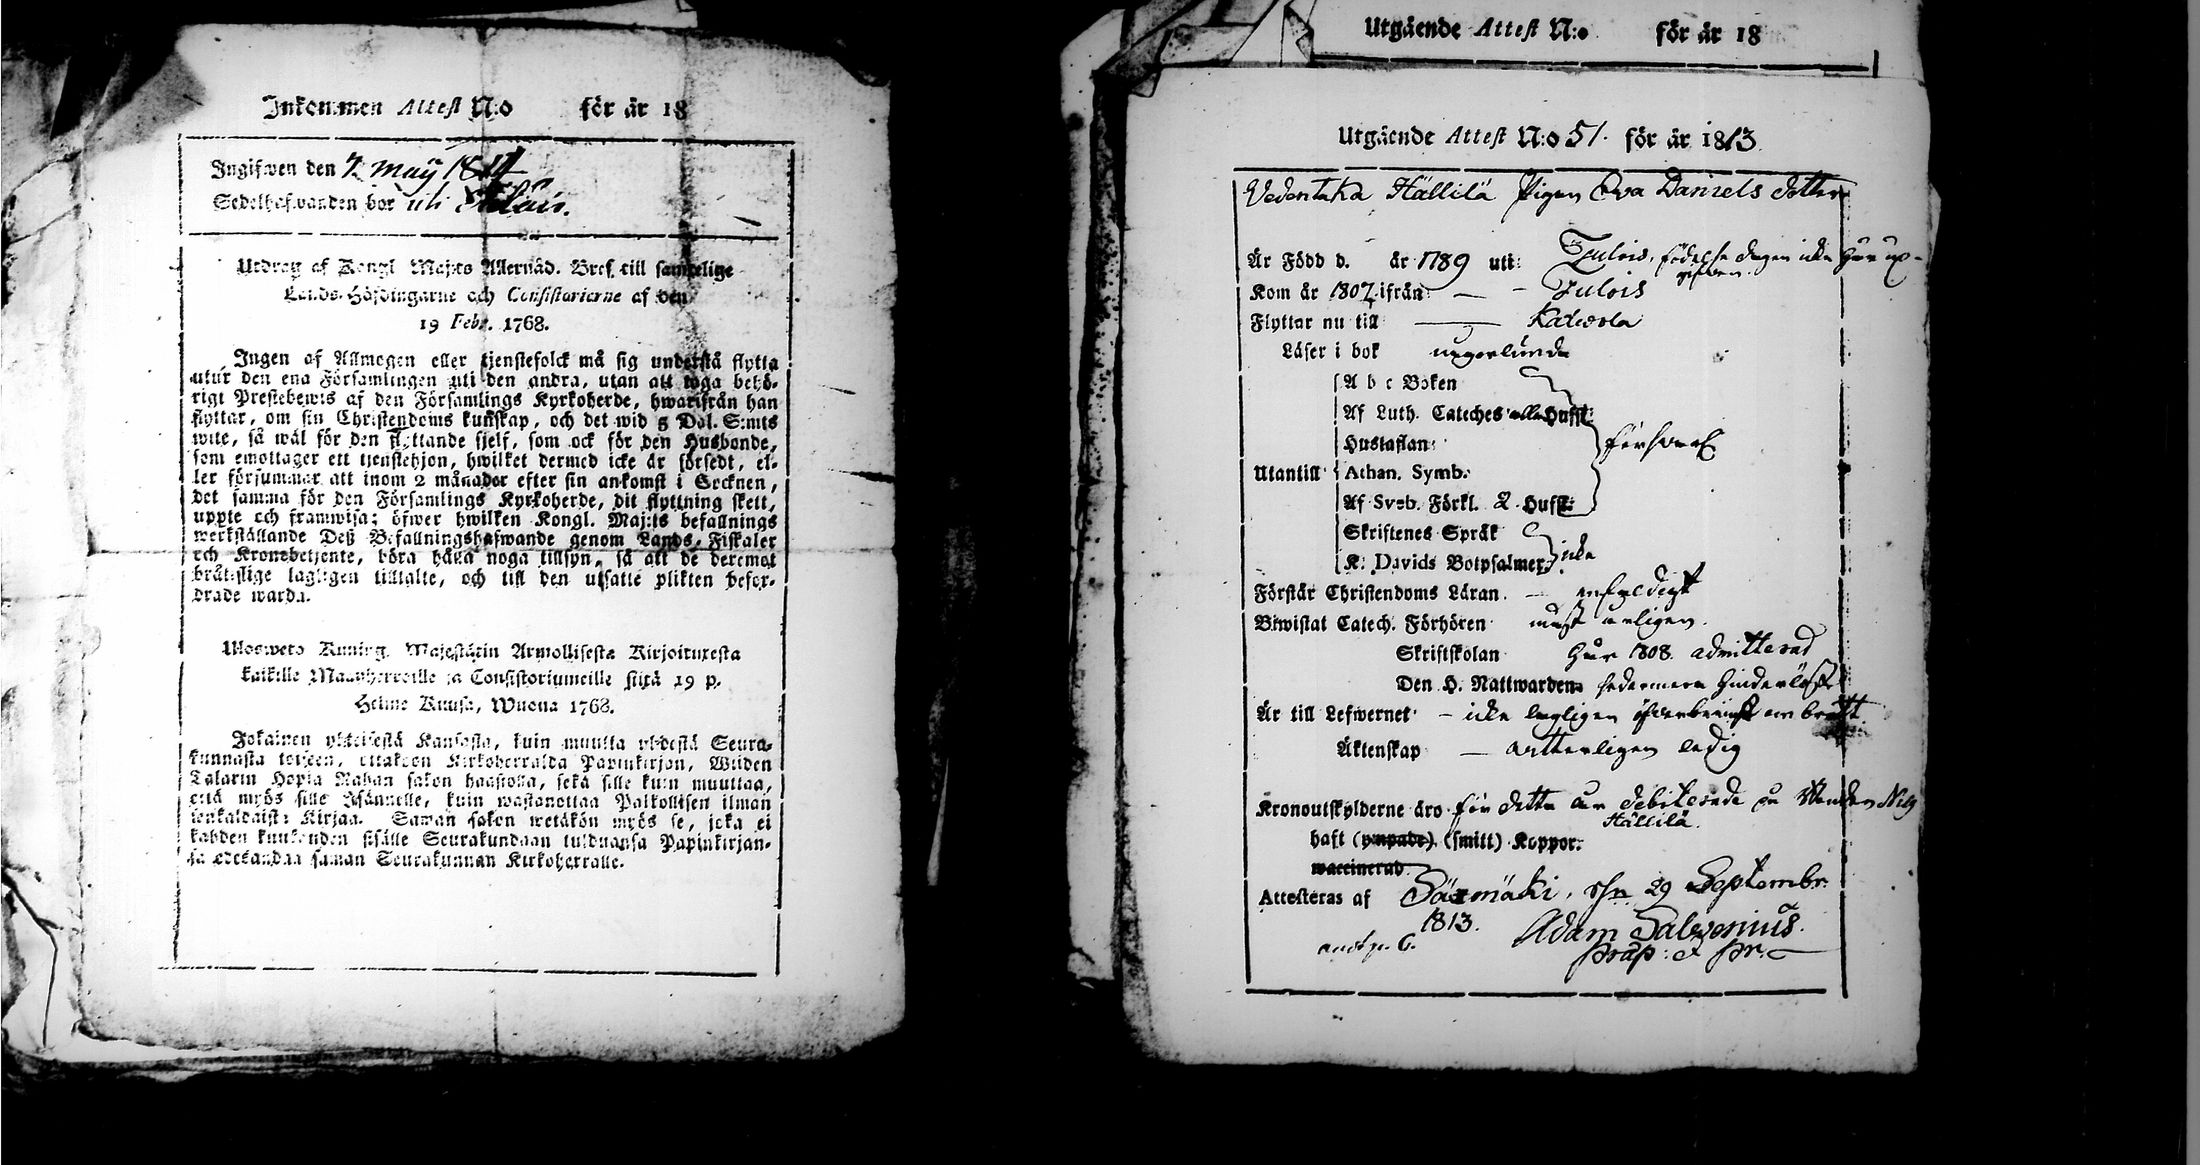 Inkommen Attest N:o för år 18
Ingifwen den 7 Maij 1814
Sedelhafwanden bor uti
Utdrag af Kongl Maj:ts Allernåd. Bref till samtelige
Lands-Höfdingarne och Consistorierne af den
19 Febr. 1768.
Ingen af Allmogen eller tjenstefolck må sig understå flytta
utur den ena Församlingen uti den andra, utan att taga behö-
rigt Prestebewis af den Församlings Kyrkoherde, hwarifrån han
flyttar, om sin Christendoms kunskap, och det wid 5 Dal. S:mts
wite, så wäl för den flyttande sjelf, som ock för den Husbonde,
som emottager ett tjenstehjon, hwilket dermed icke är försedt, el-
ler försummar att inom 2 månader efter sin ankomst i Socknen,
det samma för den Församlings Kyrkoherde, dit flyttning skett,
uppte och framwisa; öfwer hwilken Kongl. Maj:ts befallnings
werkställande Deß Befallningshafwande genom Lands-Fiskaler
och Kronobetjente, böra hafwa noga tillsyn, så att de deremot
bråtslige lagligen tilltalte, och till den utsatte plikten befor-
drade warda.
Ulosweto Kuning. Majestätin Armollisesta Kirjoituxesta
kaikille Maanherroille ja Consistoriumeille siitä 19 p.
Helme Kuusa, Wuona 1768.
Jokainen yhteisestä Kansasta, kuin muutta yhdestä Seura-
kunnasta toiseen, ottakoon Kirkoherralda Papinkirjan, Wiiden
Talarin Hopia Rahan sakon haastolla, sekä sille kuin muuttaa,
että myös sille Isännelle, kuin wastanottaa Palkollisen ilman
senkaldaista Kirjaa. Saman sakon wetäkön myös se, joka ei
kahden kuukauden sisälle Seurakundaan tulduansa Papinkirjan-
sa edesandaa saman Seurakunnan Kirkoherralle.
Utgående Attest N:o för år 18
Utgående Attest N:o 51. för år 1813.
Vedentaka Hällilä Pigan Eva Daniels dotter
Är Född d. år 1789 uti: Tulois, födelse dagen icke har up-
gifven.
Kom år 1807 ifrån: Tulois
Flyttar nu till Kalvola
Läser i bok någorlunda
Utantill
A b c Boken
Af Luth. Cateches alla Hufst:
Hustaflan:
Athan. Symb.
Af Sveb. Förkl. 2 Hufst:
försvarl
Skriftenes Språk
K. Davids Botpsalmer:
icke
Förstår Christendoms Läran. enfaldigt
Biwistat Catech. Förhören måst årligen.
Skriftskolan har 1808. admitterad
Den H. Nattwarden sedermera hinderlöst
Är till Lefwernet icke lagligen öfverbevist om brått
Äktenskap witterligen ledig
Kronoutskylderne äro för detta år debiterade på Wenden Nily
Hällilä.
haft (ympade) (smitt) Koppor.
waccinerad
Attesteras af Säxmäki, den 29 Septembr.
1813. Adam Salvenius.
præp: et pr: